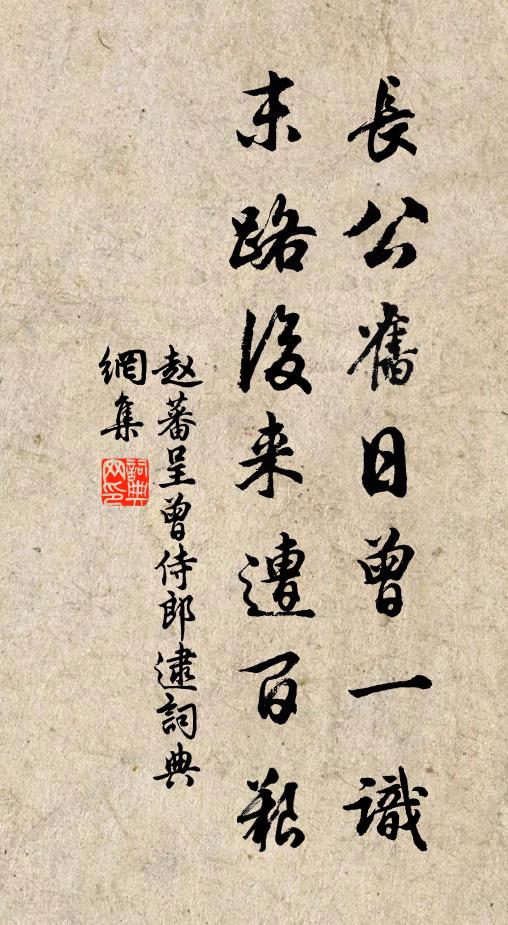 長公舊日曾一識
末路後来遭百艱
赵蕃呈曾侍郎逮詞典
網集
詞典网印